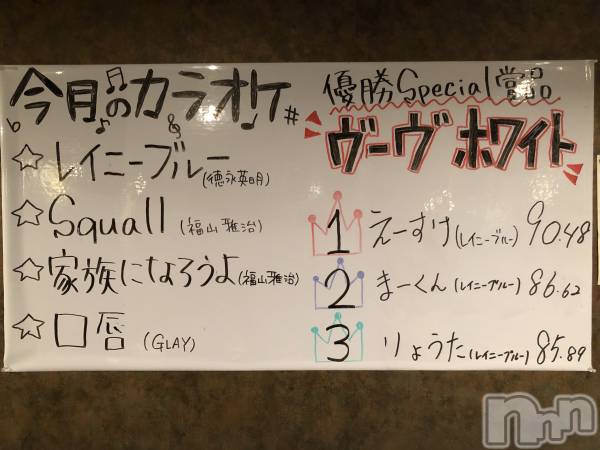 今月のカラオケ
☆レイニーブルー
(徳永英明)
☆Squall (福山雅治)
☆家族になろうよ(福山雅治)
☆口唇 (GLAY)
優勝Special賞品
ヴーヴ ホワイト
1 えーすけ(レイニーブルー) 90.48
2 まーくん(レイニーブルー) 86.62
3 りょうた(レイニーブルー) 85.89
nnn